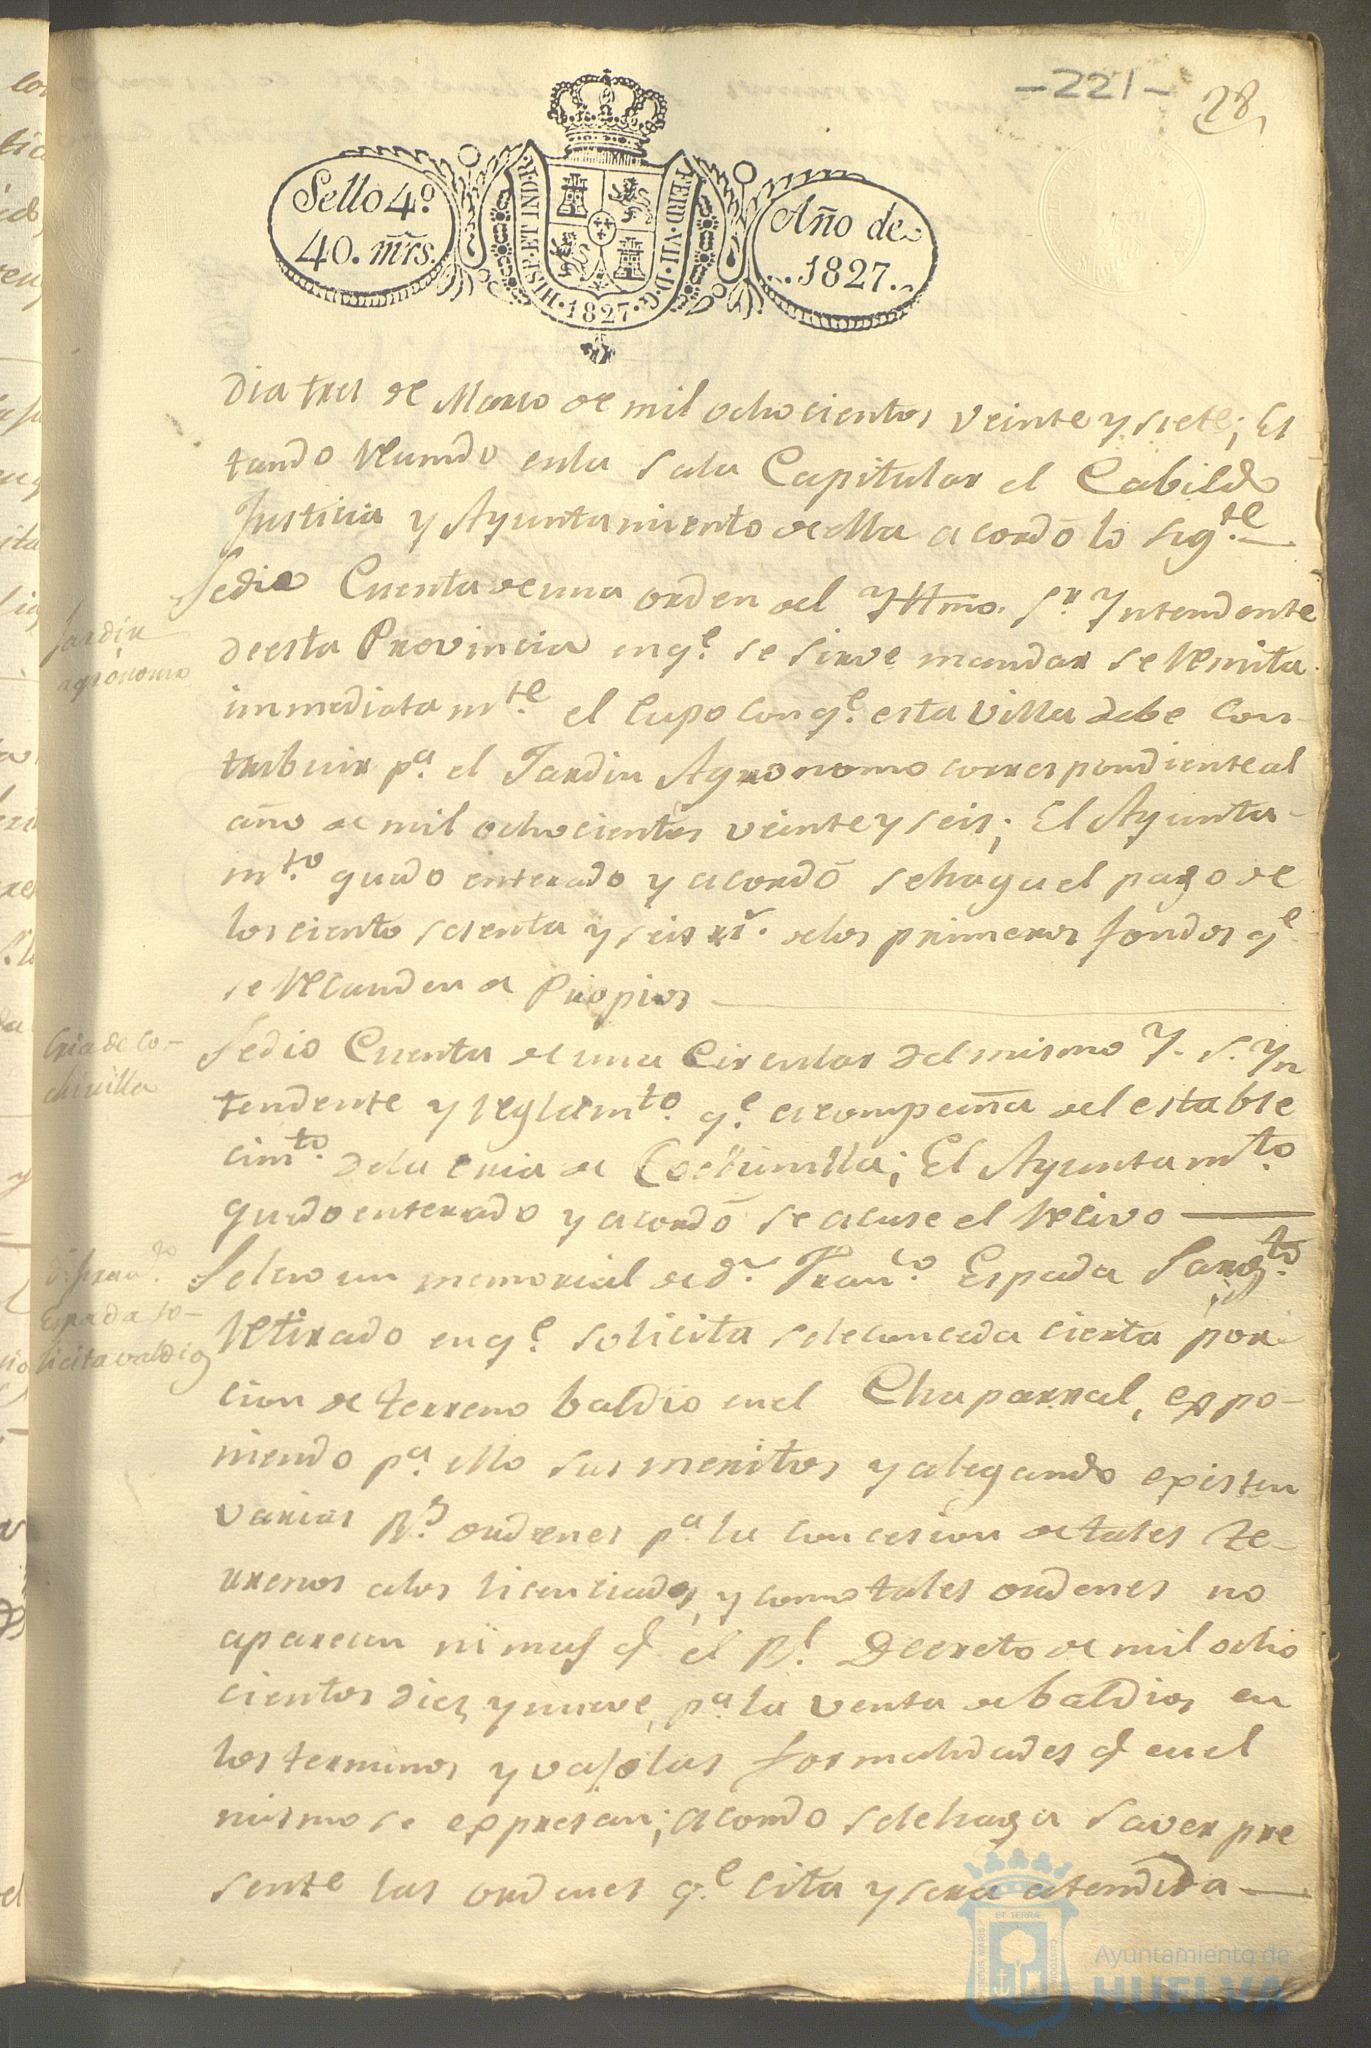 -221-
28
Sello 4º
40. mrs.
HISP·ET IND·R·
FERD·VII·D·G·
·1827·
Año de
..1827..
Dia tres de Marzo de mil ochocientos veinte y siete; Es
tando Reunido enla Sala Capitular el Cabildo
Justicia y Ayuntamiento de ella acordó lo sigte
Jardin
agronomo
Sedio Cuenta de una orden del Yltmo. Sr. Yntendente
deesta Provincia enqe. se sirve mandar se Remita
immediatamte. el Cupo conqe. esta Villa debe Con-
tribuir pa. el Jardin Agronomo correspondiente al
año de mil ochocientos veinte y seis; El Ayunta-
mto. quedo enterado y acordó sehaga el pago de
los ciento sesenta y seis rs. delos primeros fondos qe.
se Recauden de Propios
Cria de Co-
chinilla
Sedio Cuenta de una Circular del mismo Y. S. Yn
tendente y reglamto. qe. acompaña del estable
cimto. dela cria de Cochinilla; El Ayuntamto.
quedo enterado y acordó se acuse el Recivo
D. Franco.
Espada so-
licita valdios
Seleio un memorial de Dn. Franco. Espada Sargto.
Retirado enqe. solicita sele conceda cierta por
cion de terreno baldio en el Chaparral, expo-
niendo pa. ello sus meritos y alegando existen
varias Rs. ordenes pa. la concesion de tales te-
rrenos alos licenciados, y como tales ordenes no
aparecen ni mas q. el Rl. Decreto de mil ocho
cientos diez y nueve, pa. la venta de baldios en
los terminos y vajo las formalidades q. en el
mismo se expresan; acordo sele haga saver pre
sente las ordenes qe. cita y sera atendida
PORTUS MARIS
ET TERRÆ
CUSTODIA
Ayuntamiento de
HUELVA